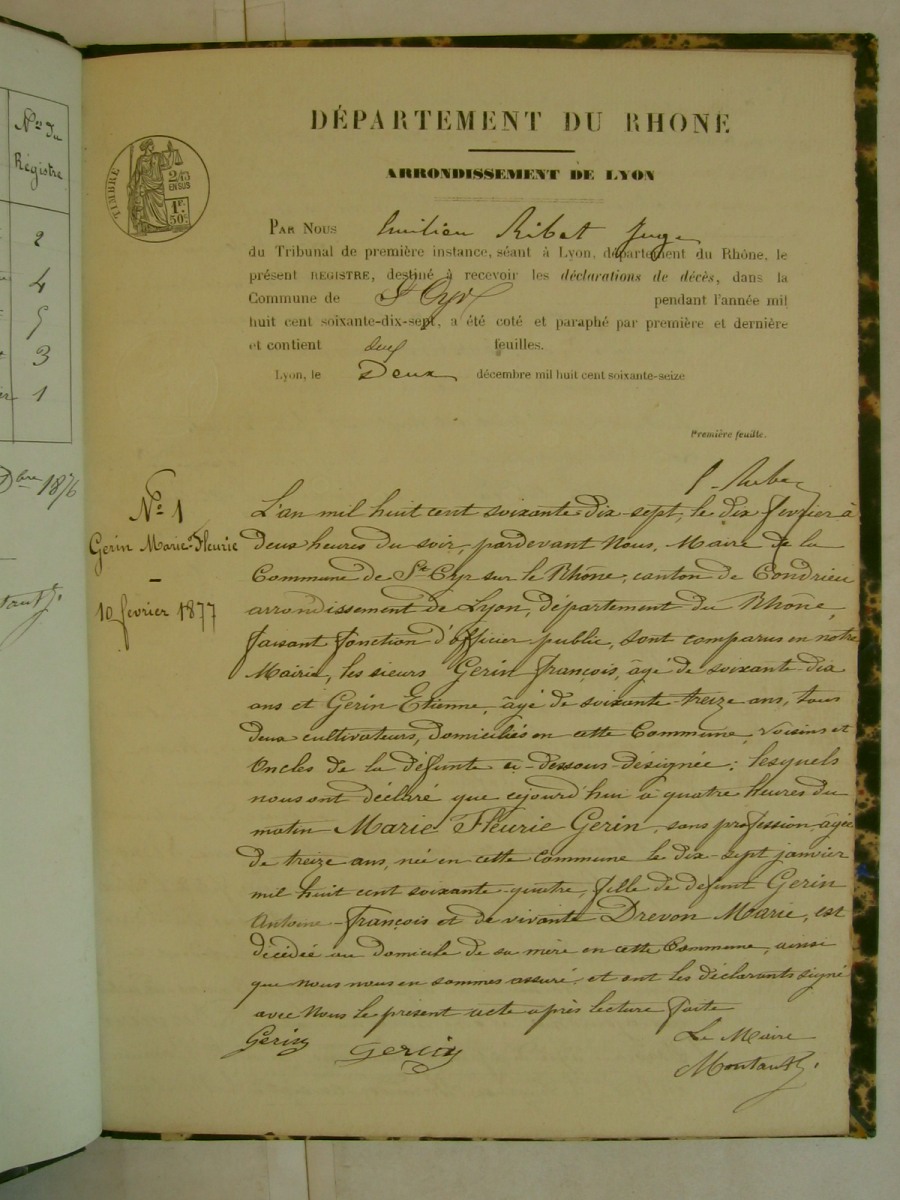 Nos du
Régistre
2
4
5
3
1
Dbre 1876
DÉPARTEMENT DU RHONE
ARRONDISSEMENT DE LYON
TIMBRE
2/10
EN SUS
1F.
50c.
PAR NOUS Emilien Ribet Juge
du Tribunal de première instance, séant à Lyon, département du Rhône, le
présent REGISTRE, destiné à recevoir les déclarations de décès, dans la
Commune de St Cyr pendant l'année mil
huit cent soixante-dix-sept, a été coté et paraphé par première et dernière
et contient feuilles.
Lyon, le Deux décembre mil huit cent soixante-seize
Première feuille.
No 1
Gerin Marie-Fleurie
10 fevrier 1877
L'an mil huit cent soixante dix-sept, le dix fevrier à
deux heures du soir, pardevant Nous, Maire de la
Commune de St Cyr sur le Rhône, canton de Condrieu
arrondissement de Lyon, département du Rhône,
faisant fonction d'officier public, sont comparus en notre
Mairie, les sieurs Gerin françois, âgé de soixante-dix
ans et Gerin Etienne, âgé de soixante-treize ans, tous
deux cultivateurs, domiciliés en cette Commune, voisins et
Oncles de la défunte ci-dessous désignée; lesquels
nous ont déclaré que cejourd'hui à quatre heures du
matin Marie Fleurie Gerin, sans profession, âgée
de treize ans, née en cette Commune le dix-sept janvier
mil huit cent soixante-quatre, fille de défunt Gerin
Antoine-françois et de vivante Drevon Marie, est
décédée au domicile de sa mère en cette Commune, ainsi
que nous nous en sommes assuré, et ont les déclarants signé
avec Nous le présent acte après lecture faite
Gerin Gerin Le Maire